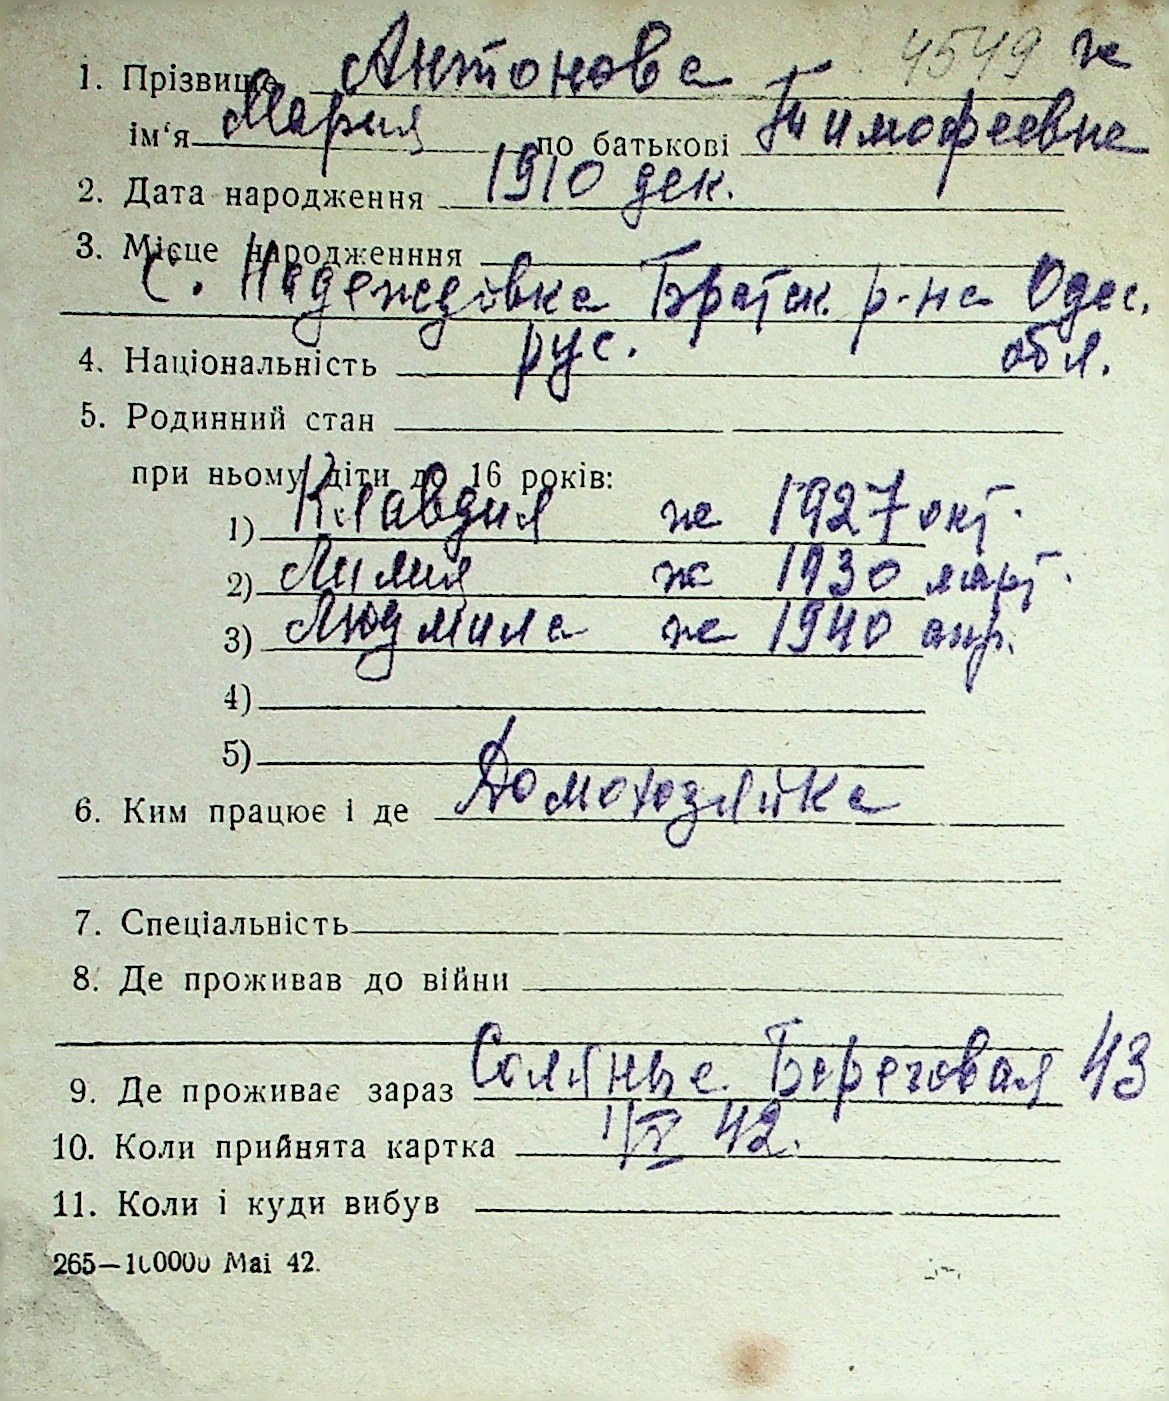 4549 ж
1. Прізвище Антонова
ім'я Мария по батькові Тимофеевна
2. Дата народження 1910 дек.
3. Місце народженння
С. Надеждовка Братск. р-на Одес.
обл.
4. Національність рус.
5. Родинний стан
при ньому діти до 16 років:
1) Клавдия ж 1927 окт.
2) Лилия ж 1930 март.
3) Людмила ж 1940 апр.
4)
5)
6. Ким працює і де Домохозяйка
7. Спеціальність
8. Де проживав до війни
9. Де проживає зараз Соляные. Береговая 43
10. Коли прийнята картка 42.
11. Коли і куди вибув
265—100000 Mai 42.